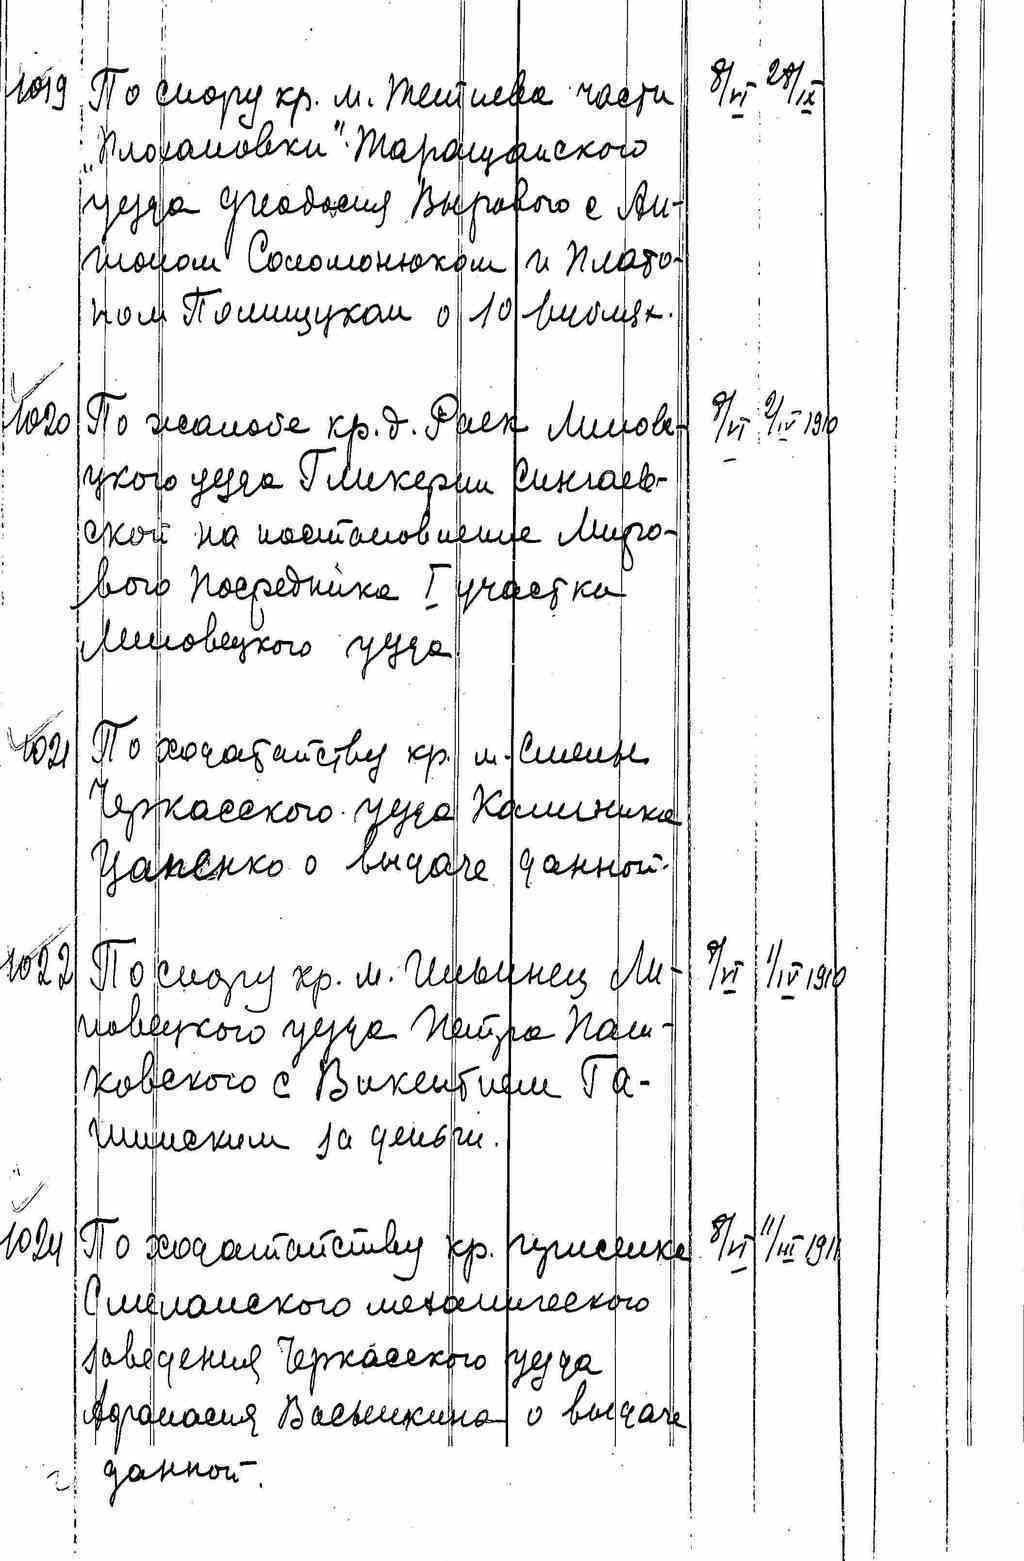 1019 По спору кр. м. Жашкова части 8/VI 28/IX
"Плохановки" Таращанского
уезда Феодосия Вырового с Ан-
тоном Соломонюком и Плато-
ном Полищуком о 10 рублях.
1020 По жалобе кр. д. Раек Липове- 8/VI 9/IV 1910
цкого уезда Гликерии Сингаев-
ской на постановление Миро-
вого Посредника I участка
Липовецкого уезда
1021 По ходатайству кр. м. Смелы
Черкасского уезда Калиника
Цапенко о выдаче данной.
1022 По спору кр. м. Ильинец Ли- 8/VI 11/IV 1910
повецкого уезда Петра Паш-
ковского с Викентием Га-
шинским за деньги.
1024 По ходатайству кр. 8/VI 11/III 1911
Смелянского металического
заведения Черкасского уезда
Афанасия Васышкина о выдаче
данной.